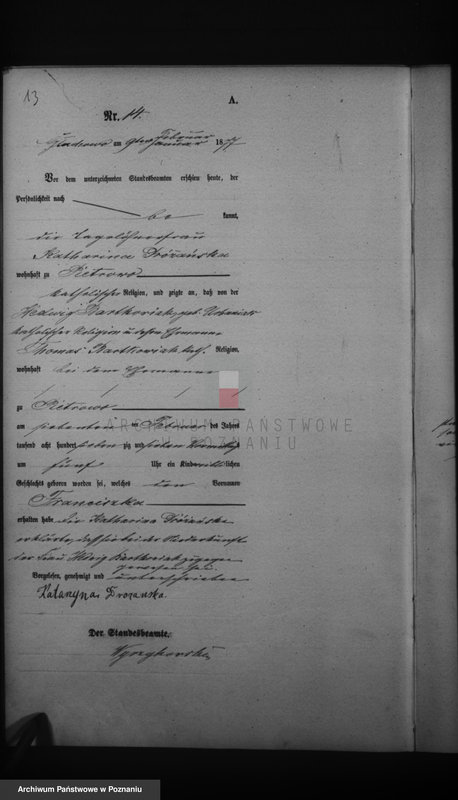 13
A.
Nr. 14.
am 9ten Februar 1877
Vor dem unterzeichneten Standesbeamten erschien heute, der
Persönlichkeit nach
be kannt,
die Tagelöhnerfrau
Katharina Dróżańska
wohnhaft zu Pietrowo
katholischer Religion, und zeigte an, daß von der
Hedwig Bartkowiak, geb. Urbaniak
katholischer Religion u. dessen Ehemann
Thomas Bartkowiak kath. Religion,
wohnhaft bei dem Ehemanne
zu Pietrowo
ARCHIWUM PAŃSTWOWE
W POZNANIU
am siebenten ten Februar des Jahres
tausend acht hundert sieben zig und sieben Vormittags
um fünf Uhr ein Kind weiblichen
Geschlechts geboren worden sei, welches den Vornamen
Franciszka
erhalten habe. Die Katharina Dróżańska
erklärte, daß sie bei der Niederkunft
der Frau Hedwig Bartkowiak zugegen
gewesen sei.
Vorgelesen, genehmigt und unterschrieben
Katarzyna Drozanska.
Der Standesbeamte.
Archiwum Państwowe w Poznaniu